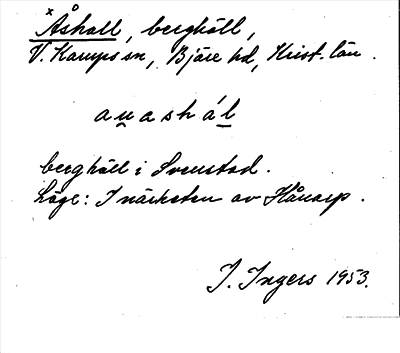 × Åshall, berghäll,
V. Karups sn, Bjäre hd, Krist. län.
auashál
berghäll i Svenstad.
Läge: I närheten av Hånarp.
I. Ingers 1953.